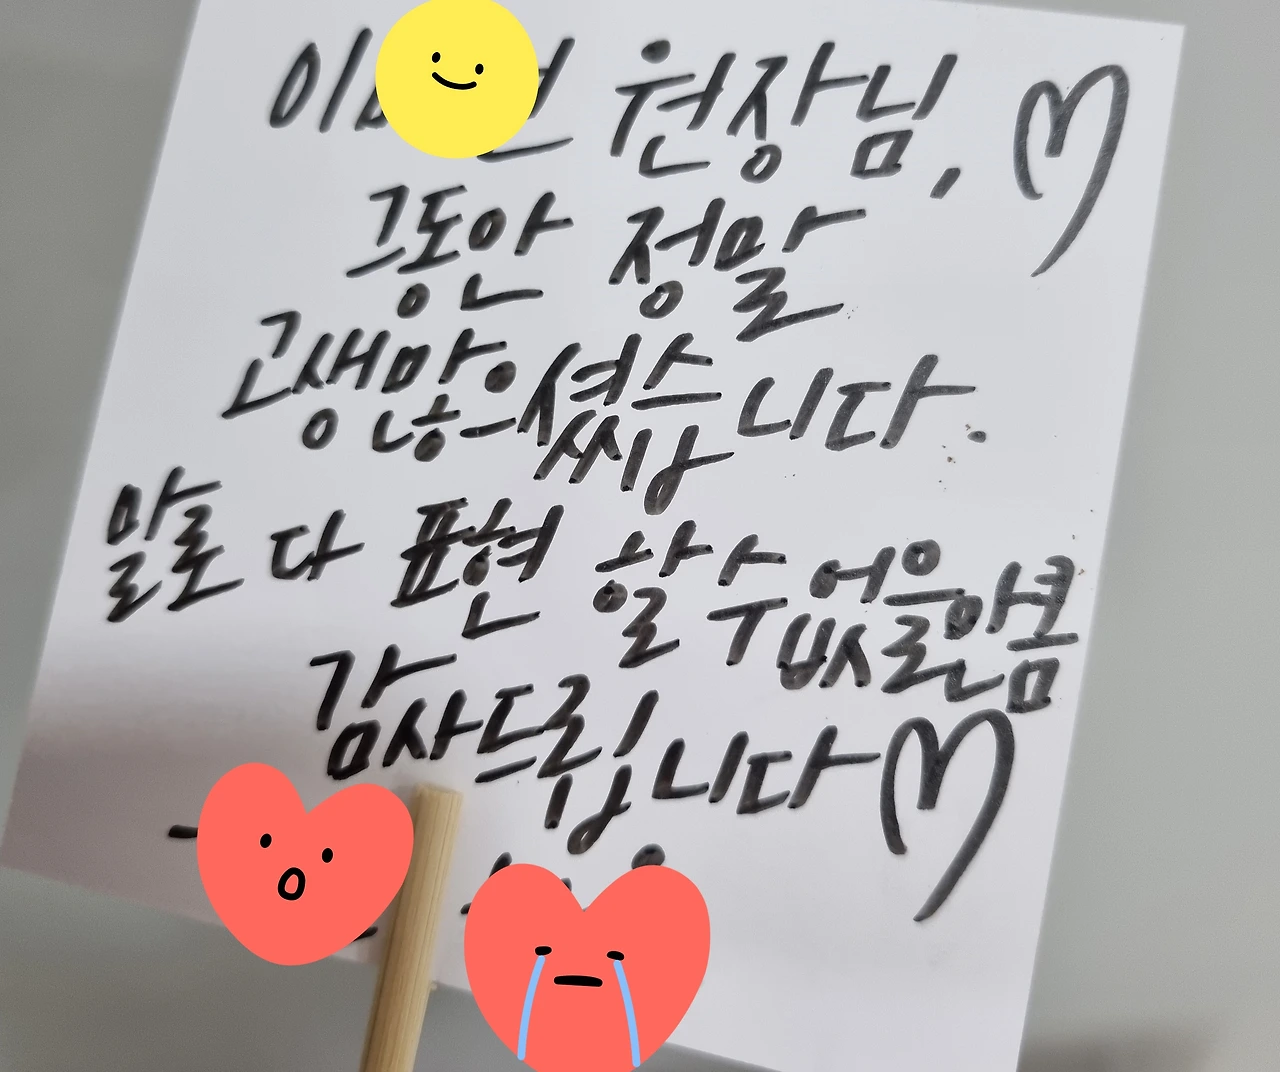 원장님, ♡
그동안 정말
고생많으셨습니다.
말로 다 표현 할 수 없을만큼
감사드립니다♡